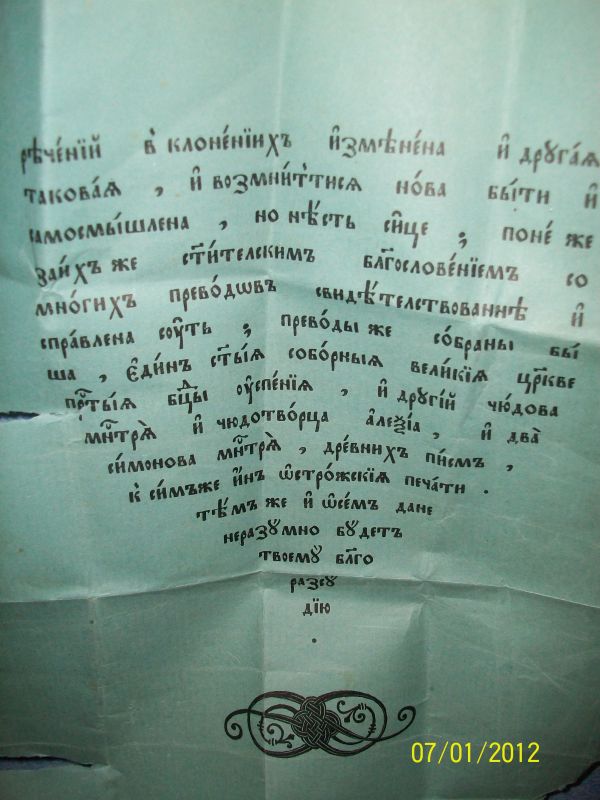 рѣче́нїй в̾ клоне́нїихъ и҆змѣне́на и҆ дрꙋга́ѧ
такова́ѧ , и҆ возмни́т̾тисѧ но́ва бы́ти и҆
самосмы́шлена , но нѣ́сть си́це ; поне́ же
за́и́хъ же ст҃и́телскимъ бл҃гослове́нїемъ со
мно́гихъ прево́дѡвъ свидѣ́телствованнѣ и҆
спра́влена сꙋ́ть ; прево́ды же со́браны бы́
ша , є҆ди́нъ ст҃ы́ѧ собо́рныѧ вели́кїѧ цр҃кве
прⷭ҇ты́ѧ бцⷣы ᲂу҆спе́нїѧ , и҆ дрꙋгі́й чю́дова
мн҇трѧ̀ и҆ чюдотво́рца а҆леѯі́а , и҆ два̀
си́монова мн҇трѧ̀ , дре́внихъ пи́смъ ,
к̾ си́мъже и҆и́нъ ѡ҆стро́жскїѧ печа́ти .
тѣ́мъ же и҆ ѡ҆се́мъ дане
неразꙋ́мно бꙋ́детъ
твоемꙋ̀ бл҃го
разсꙋ́
дїю
.
07/01/2012